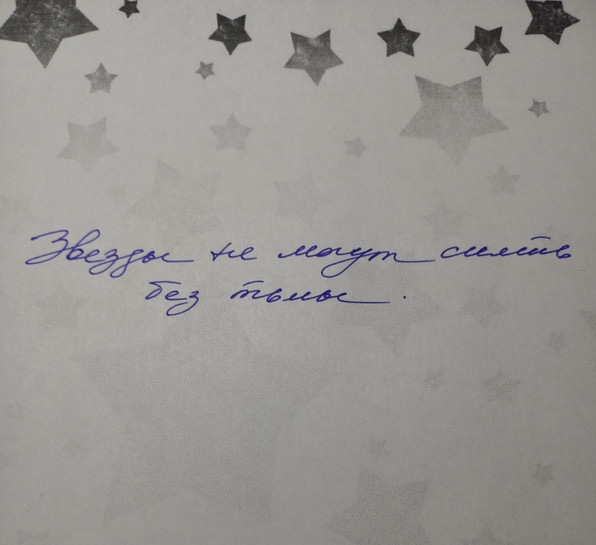 Звезды не могут сиять
без тьмы.